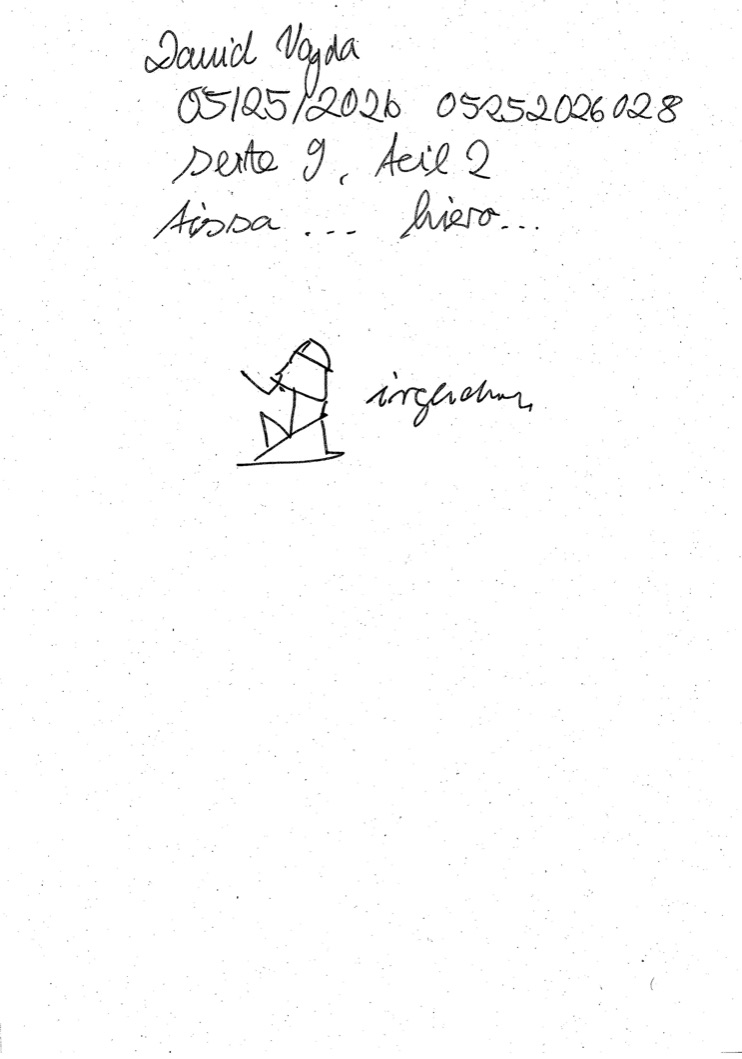 David Vajda
05/25/2026 05252026028
Seite 9, Teil 2
Aissa ... hiero...